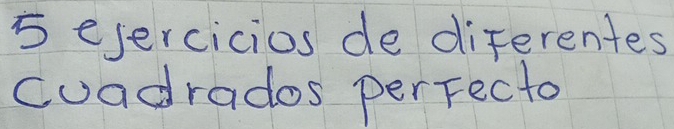 5 ejercicios de diferentes
cuadrados perfecto